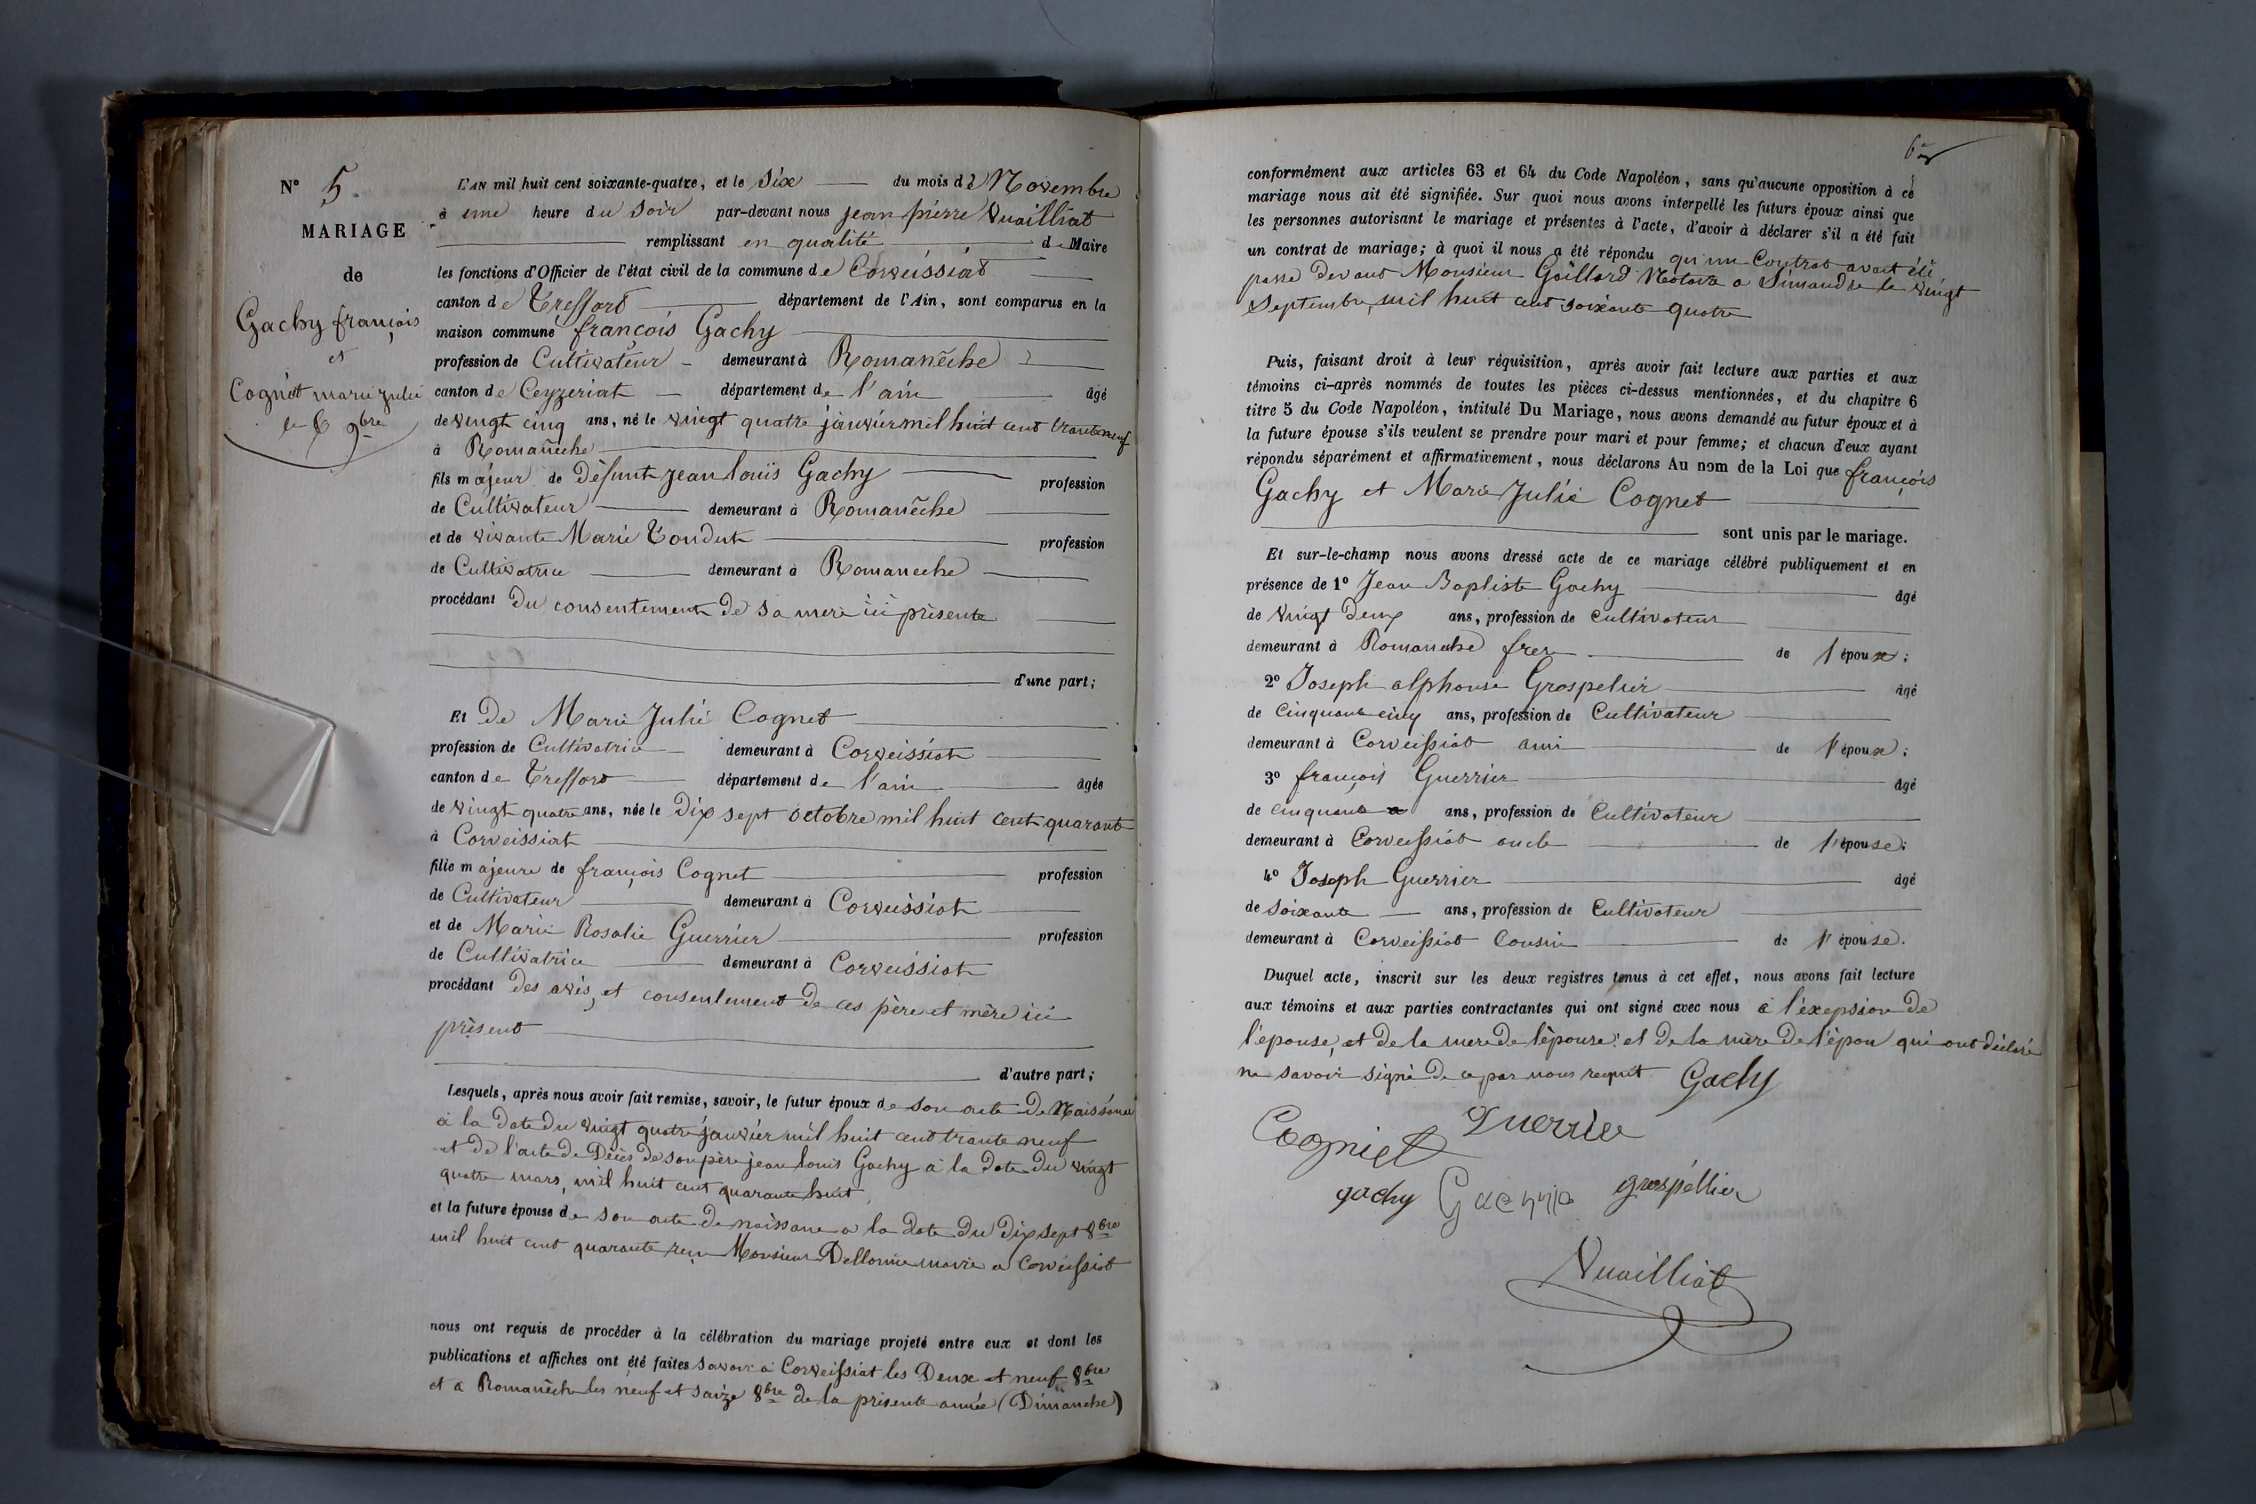 N° 5.
MARIAGE
de
Gachy françois
et
Cognet marie julie
le 6 9bre
L'AN mil huit cent soixante-quatre, et le Six du mois de Novembre
à une heure du soir par-devant nous jean pierre Vuailliat
remplissant en qualité de Maire
les fonctions d'Officier de l'état civil de la commune de Corveissiat
canton de Treffort département de l'Ain, sont comparus en la
maison commune françois Gachy
profession de Cultivateur demeurant à Romanèche
canton de Ceyzeriat département de l'ain âgé
de vingt cinq ans, né le vingt quatre janvier mil huit cent trante neuf
à Romanèche
fils majeur de Défunt jean louis Gachy profession
de Cultivateur demeurant à Romanèche
et de vivante Marie Tondut profession
de Cultivatrice demeurant à Romaneche
procédant du consentement de sa mere ici présente
d'une part;
Et De Marie Julie Cognet
profession de Cultivatrice demeurant à Corveissiat
canton de Treffort département de l'ain âgée
de vingt quatre ans, née le Dix sept octobre mil huit cent quarante
à Corveissiat
fille majeure de françois Cognet profession
de Cultivateur demeurant à Corveissiat
et de Marie Rosalie Guerrier profession
de Cultivatrice demeurant à Corveissiat
procédant des avis, et consentement de ces père et mère ici
présent
d'autre part;
Lesquels, après nous avoir fait remise, savoir, le futur époux de son acte de Naissance
à la date du vingt quatre janvier mil huit cent trante neuf
et de l'acte de Décès de son père jean louis Gachy à la date du vingt
quatre mars, mil huit cent quarante huit,
et la future épouse de son acte de naissance a la date du dix sept 8bre
mil huit cent quarante reçu Monsieur Dellorme maire a Corveissiat
nous ont requis de procéder à la célébration du mariage projeté entre eux et dont les
publications et affiches ont été faites savoir à Corveissiat les Deux et neuf 8bre
et a Romanèche les neuf et saize 8bre de la présente année (Dimanche)
conformément aux articles 63 et 64 du Code Napoléon, sans qu'aucune opposition à ce
mariage nous ait été signifiée. Sur quoi nous avons interpellé les futurs époux ainsi que
les personnes autorisant le mariage et présentes à l'acte, d'avoir à déclarer s'il a été fait
un contrat de mariage; à quoi il nous a été répondu qu'un Contrat avait été
passé devant Monsieur Gaillard Notaire a Simandre le vingt
Septembre mil huit cent soixante quatre
Puis, faisant droit à leur réquisition, après avoir fait lecture aux parties et aux
témoins ci-après nommés de toutes les pièces ci-dessus mentionnées, et du chapitre 6
titre 5 du Code Napoléon, intitulé Du Mariage, nous avons demandé au futur époux et à
la future épouse s'ils veulent se prendre pour mari et pour femme; et chacun d'eux ayant
répondu séparément et affirmativement, nous déclarons Au nom de la Loi que françois
Gachy et Marie Julie Cognet
sont unis par le mariage.
Et sur-le-champ nous avons dressé acte de ce mariage célébré publiquement et en
présence de 1° Jean Baptiste Gachy âgé
de vingt deux ans, profession de Cultivateur
demeurant à Romaneche frere de l'époux;
2° Joseph alphonse Grospelier âgé
de Cinquante cinq ans, profession de Cultivateur
demeurant à Corveissiat ami de l'époux;
3° françois Guerrier âgé
de cinquante ans, profession de Cultivateur
demeurant à Corveissiat oncle de l'épouse;
4° Joseph Guerrier âgé
de soixante ans, profession de Cultivateur
demeurant à Corveissiat Cousin de l'épouse.
Duquel acte, inscrit sur les deux registres tenus à cet effet, nous avons fait lecture
aux témoins et aux parties contractantes qui ont signé avec nous à l'éxepsion de
l'épouse, et de la mere de l'épouse et de la mère de l'épou qui ont déclaré
ne savoir signé de ce par nous requit Gachy
Cogniet Guerrier
gachy grospéllier
Vuailliat